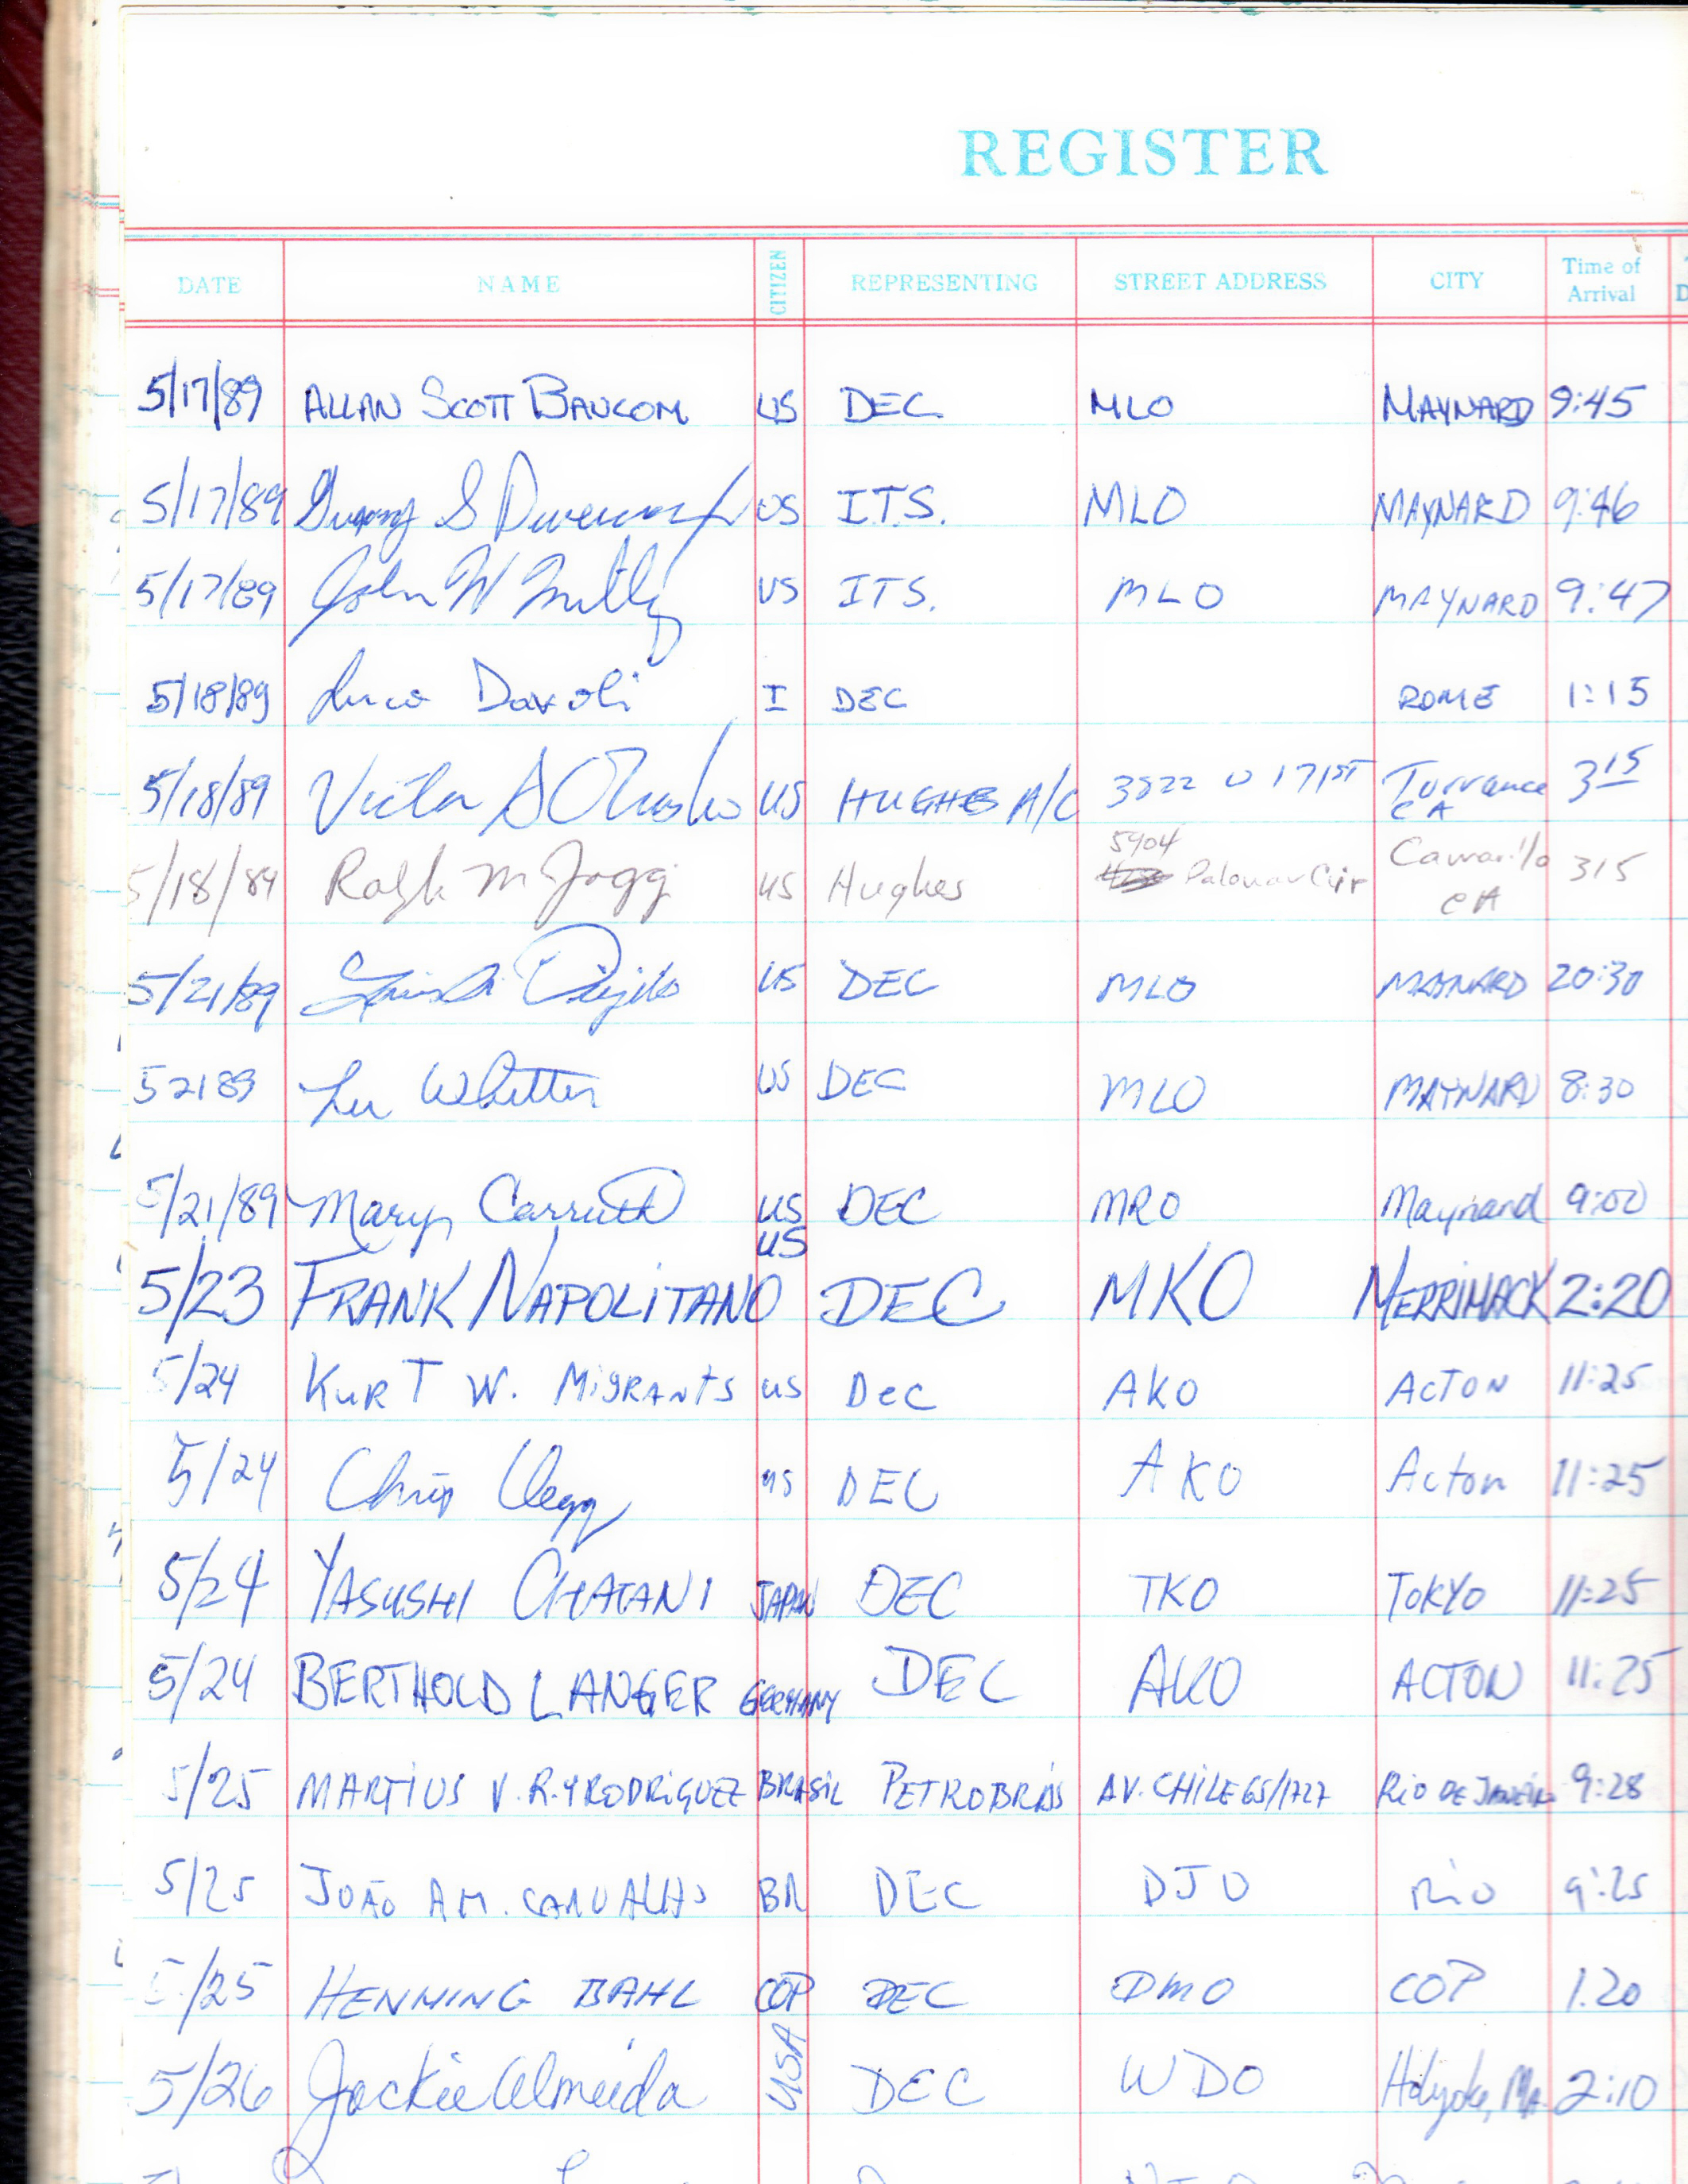 REGISTER
DATE NAME CITIZEN REPRESENTING STREET ADDRESS CITY Time of Arrival
5/17/89 ALLAN SCOTT BAUCOM US DEC MLO MAYNARD 9:45
5/17/89 S US I.T.S. MLO MAYNARD 9:46
5/17/89 John W US ITS. MLO MAYNARD 9:47
5/18/89 Luca Davoli I DEC ROME 1:15
5/18/89 Victor S US HUGHES A/C 3522 W 171ST Torrance CA 3 15
5/18/89 Ralph M Jaggi US Hughes 5904 Palomar Cir Camarillo CA 315
5/21/89 US DEC MLO MAYNARD 20:30
5 21 89 Lee Whitten US DEC MLO MAYNARD 8:30
5/21/89 Mary Carruth US DEC MRO Maynard 9:00
5/23 FRANK NAPOLITANO US DEC MKO MERRIMACK 2:20
5/24 KURT W. MIGRANTS US DEC AKO ACTON 11:25
5/24 Chris Clegg US DEC AKO Acton 11:25
5/24 YASUSHI CHATANI JAPAN DEC TKO TOKYO 11:25
5/24 BERTHOLD LANGER GERMANY DEC AKO ACTON 11:25
5/25 MARTIUS V. R. Y RODRIGUEZ BRASIL PETROBRÁS AV. CHILE 65/1727 RIO DE JANEIRO 9:28
5/25 JOÃO A M. CARVALHO BR DEC DJO Rio 9:25
5/25 HENNING BAHL COP DEC DMO COP 1.20
5/26 Jackie Almeida USA DEC WDO Holyoke, MA. 2:10